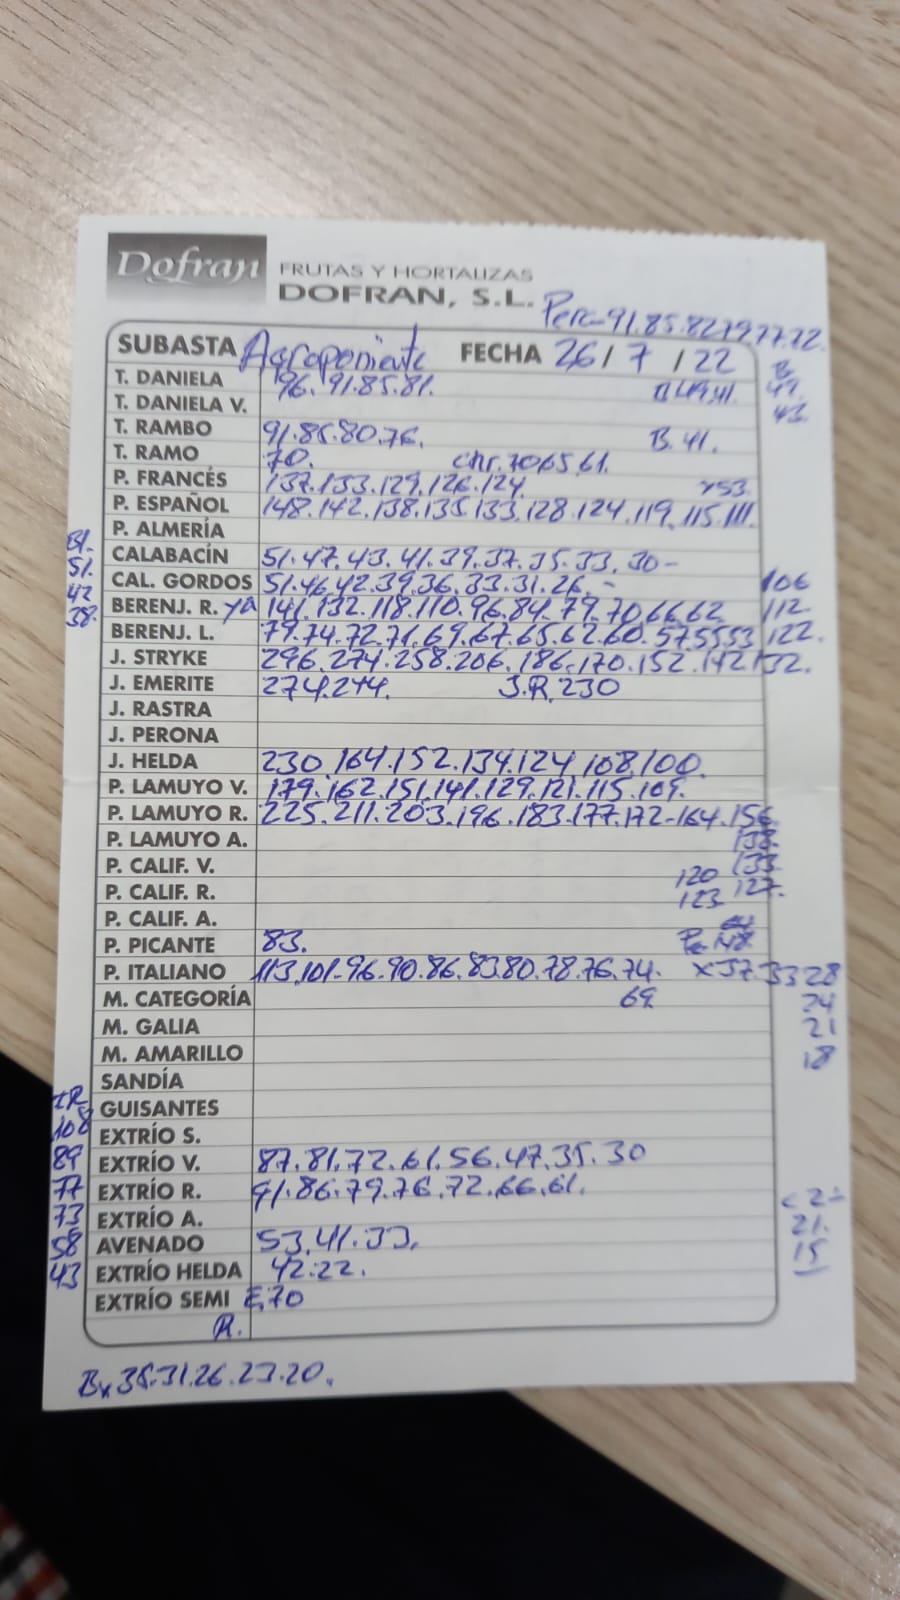 Dofran FRUTAS Y HORTALIZAS
DOFRAN, S.L.
Pera-91.85.82.79.77.72.
SUBASTA Agroponiente FECHA 26/7/22
B
49.
43.
T. DANIELA 96.91.85.81. B49.41.
T. DANIELA V.
T. RAMBO 91.85.80.76. B.41.
T. RAMO 70. Chr.70.65.61.
P. FRANCÉS 137.133.129.126.124 x53.
P. ESPAÑOL 148.142.138.135.133.128.124.119.115.111.
P. ALMERÍA
Bl.
51.
42
38.
CALABACÍN 51.47.43.41.39.37.35.33.30-
CAL. GORDOS 51.46.42.39.36.33.31.26.-
106
112
122.
BERENJ. R. ya 141.132.118.110.96.84.79.70.66.62
BERENJ. L. 79.74.72.71.69.67.65.62.60.57.55.53
J. STRYKE 296.274.258.206.186-170.152.142132.
J. EMERITE 274.244. J.R.230
J. RASTRA
J. PERONA
J. HELDA 230.164.152.134.124.108.100.
P. LAMUYO V. 179.162.151.141.129.121.115.109.
P. LAMUYO R. 225.211.203.196.183.177.172-164.156.
138.
133.
127.
P. LAMUYO A.
P. CALIF. V. 120
P. CALIF. R. 123
P. CALIF. A.
P. PICANTE 83.
P. ITALIANO 113.101-96.90.86.83.80.78.76.74. x37.33 28
69.
24
21
18
M. CATEGORÍA
M. GALIA
M. AMARILLO
SANDÍA
GUISANTES
EXTRÍO S.
IR
108
89
77
73
58
43
EXTRÍO V. 87.81.72.61.56.47.35.30
EXTRÍO R. 91.86.79.76.72.66.61.
EXTRÍO A.
21.
15
AVENADO 53.41.33.
EXTRÍO HELDA 42.22.
EXTRÍO SEMI E.70
R.
Bx35.31.26.23.20.